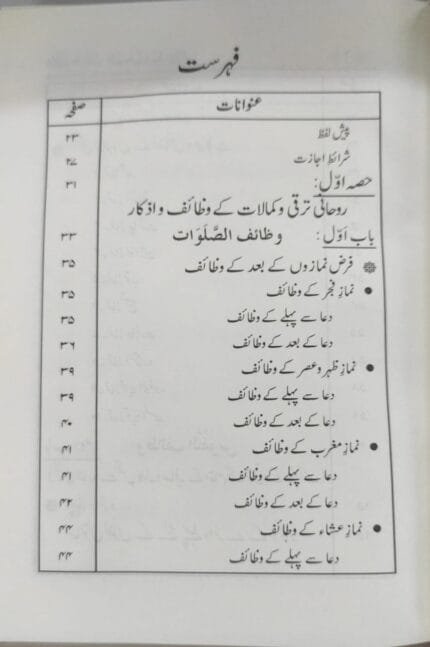 فہرست
عنوانات صفحہ
پیش لفظ ۲۳
شرائط اجازت ۲۷
حصہ اوّل: ۳۱
روحانی ترقی و کمالات کے وظائف و اذکار
باب اَوّل: وظائف الصَّلَوَات ۳۳
فرض نمازوں کے بعد کے وظائف ۳۵
• نمازِ فجر کے وظائف ۳۵
دعا سے پہلے کے وظائف ۳۵
دعا کے بعد کے وظائف ۳۶
• نمازِ ظہر و عصر کے وظائف ۳۹
دعا سے پہلے کے وظائف ۳۹
دعا کے بعد کے وظائف ۴۰
• نمازِ مغرب کے وظائف ۴۱
دعا سے پہلے کے وظائف ۴۱
دعا کے بعد کے وظائف ۴۲
• نمازِ عشاء کے وظائف ۴۴
دعا سے پہلے کے وظائف ۴۴